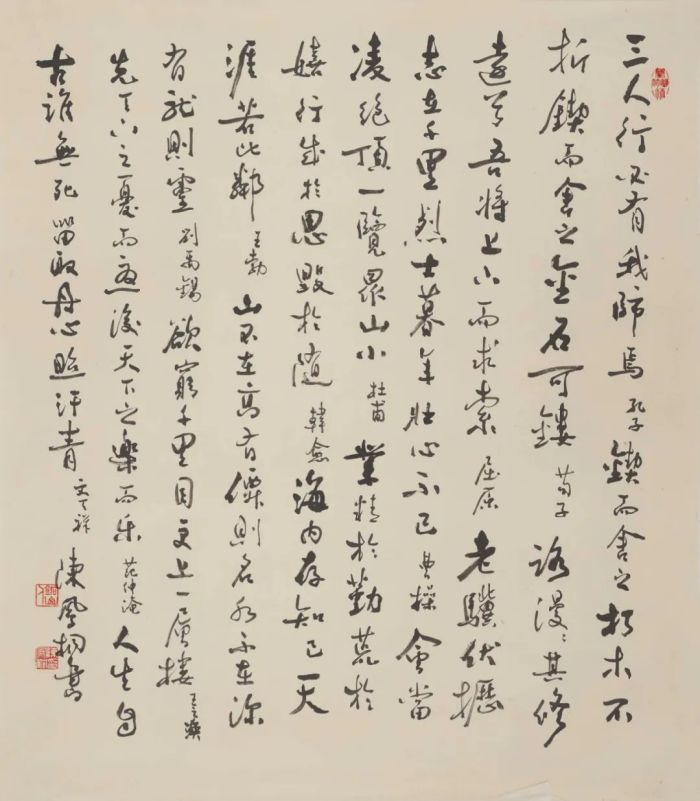 三人行必有我師焉 孔子 鍥而舍之朽木不
折鍥而舍之金石可鏤 荀子 路漫〻其修
遠兮吾將上下而求索 屈原 老驥伏櫪
志在千里烈士暮年壯心不已 曹操 會當
凌絕頂一覽眾山小 杜甫 業精於勤荒於
嬉行成於思毀於隨 韓愈 海內存知己天
涯若比鄰 王勃 山不在高有僊則名水不在深
有龍則靈 劉禹錫 欲窮千里目更上一層樓 王之渙
先天下之憂而憂後天下之樂而乐 范仲淹 人生自
古誰無死留取丹心照汗青 文天祥 陳書